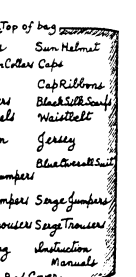 Top of bag
Sun Helmet
Collars Caps
Cap Ribbons
Black Silk Scarfs
Waistbelt
Jersey
Blue Overall Suit
Jumpers
Serge Jumpers
Trousers Serge Trousers
Instruction
Manuals